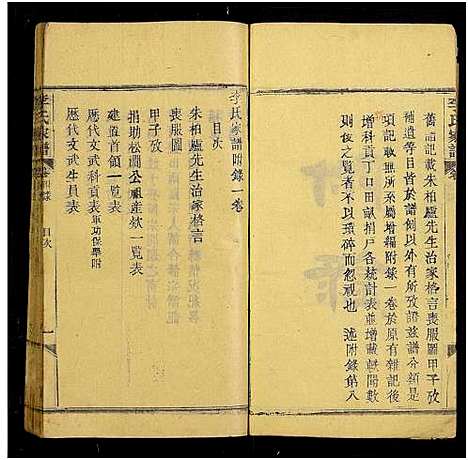 舊譜記載朱柏廬先生治家格言喪服圖甲子攷
補遺等目首於譜側以外有所攷證茲譜分類是
以無所系屬增緝附錄一卷於原有雜記後
增科貢丁口田畝捐戶各統計表並增載軼聞數
則俾之覽者不以瑣碎而忽視也 述附錄第八
李氏家譜 卷
李氏家譜附錄一卷
目次
朱柏廬先生治家格言
喪服圖
甲子攷
捐助松澗公祖產欵一覽表
建置首領一覽表
歷代文武科貢表 軍功保舉附
歷代文武生員表
李氏家譜 卷 附錄 目次